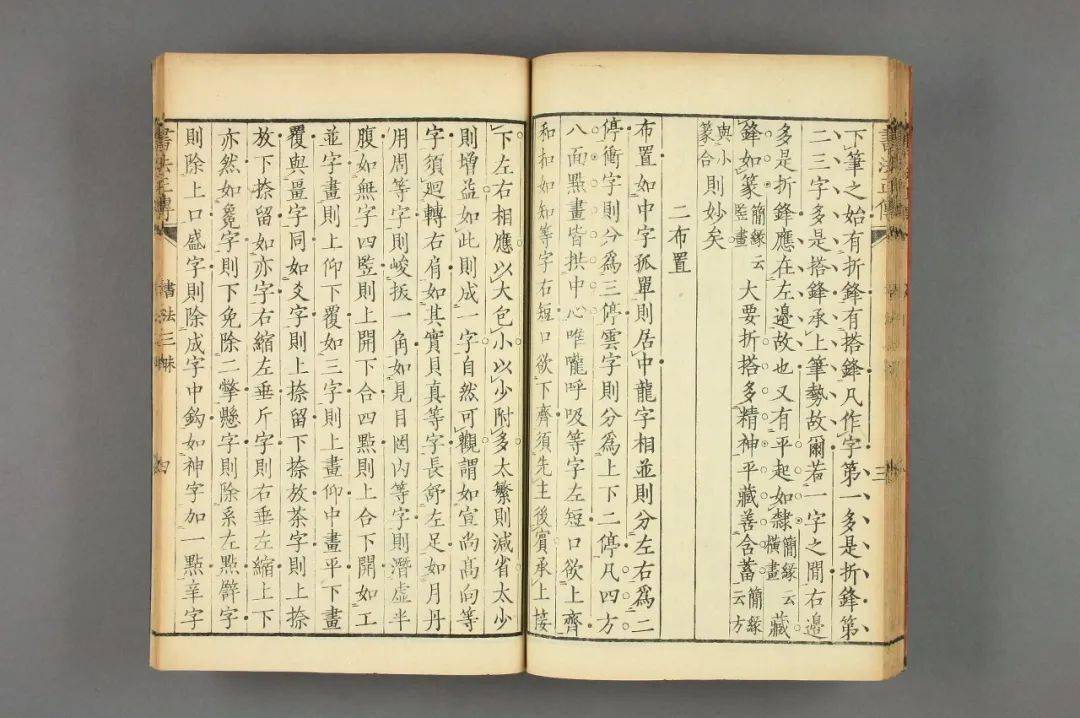 下筆之始有折鋒有搭鋒凡作字第一多是折鋒第
二三字多是搭鋒承上筆勢故爾若一字之間右邊
多是折鋒應在左邊故也又有平起如隸簡緣云橫畫藏
鋒如篆簡緣云竪畫大要折搭多精神平藏善含蓄簡緣云方
與小篆合則妙矣
二布置
布置如中字孤單則居中龍字相並則分左右為二
停衝字則分為三停雲字則分為上下二停凡四方
八面點畫皆拱中心唯嚨呼吸等字左短口欲上齊
和扣如知等字右短口欲下齊須先主後賓承上接
下左右相應以大包小以少附多太繁則減省太少
則增益如此則成一字自然可觀謂如宣尚高向等
字須迴轉右肩如其實貝真等字長舒左足如月丹
用周等字則峻扳一角如見目囙內等字則潛虛半
腹如無字四竪則上開下合四點則上合下開如工
並字畫則上仰下覆如三字則上畫仰中畫平下畫
覆與畺字同如爻字則上捺留下捺放茶字則上捺
放下捺留如亦字右縮左垂斤字則右垂左縮上下
亦然如毚字則下免除二撆懸字則除系左點辥字
則除上口盛字則除成字中鈎如神字加一點辛字
書法正傳
書法三昧
四
書法正傳
三